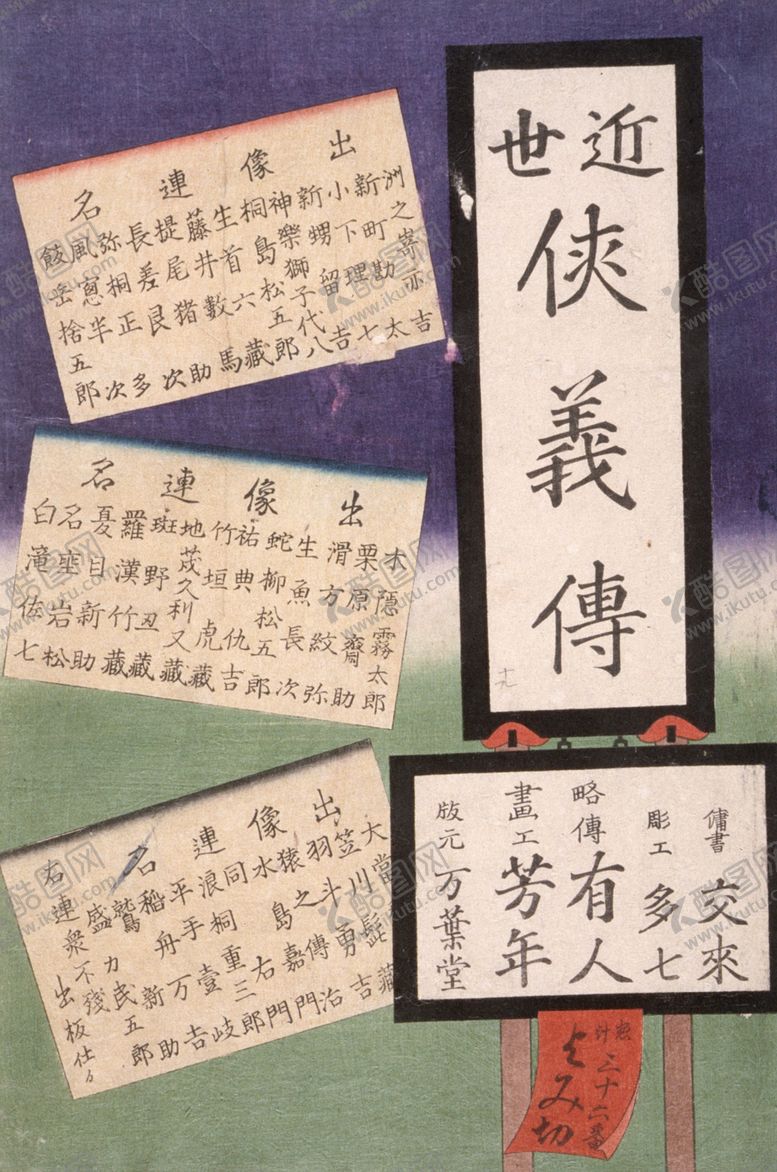 近世
侠義傳
傭書 交來
彫工 多七
略傳 有人
畫工 芳年
版元 万葉堂
惣計三十六番
よみ切
出像連名
洲之嵜 吉
新町勘太
小下理七
新甥留吉
神樂獅子代八
桐島松五郎
生首六藏
藤井數馬
提尾猪助
長 艮次
弥桐正多
風 半次
餝缶捨五郎
出像連名
大隠霧太郎
栗原齋助
滑方紋弥
生魚長次
蛇柳松五郎
祐典仇吉
竹垣虎藏
地茂久利又
斑野丑藏
羅漢竹藏
夏目新助
名埀岩松
白滝佐七
出像連名
大當髭藏
笠川勇吉
羽斗傳治
猿之
水島嘉門
同 右門
浪桐重三郎
平手壹岐
稲舟万吉
鷲 新助
盛力民五郎
右連衆不残
出板仕り
酷图网
www.ikutu.com